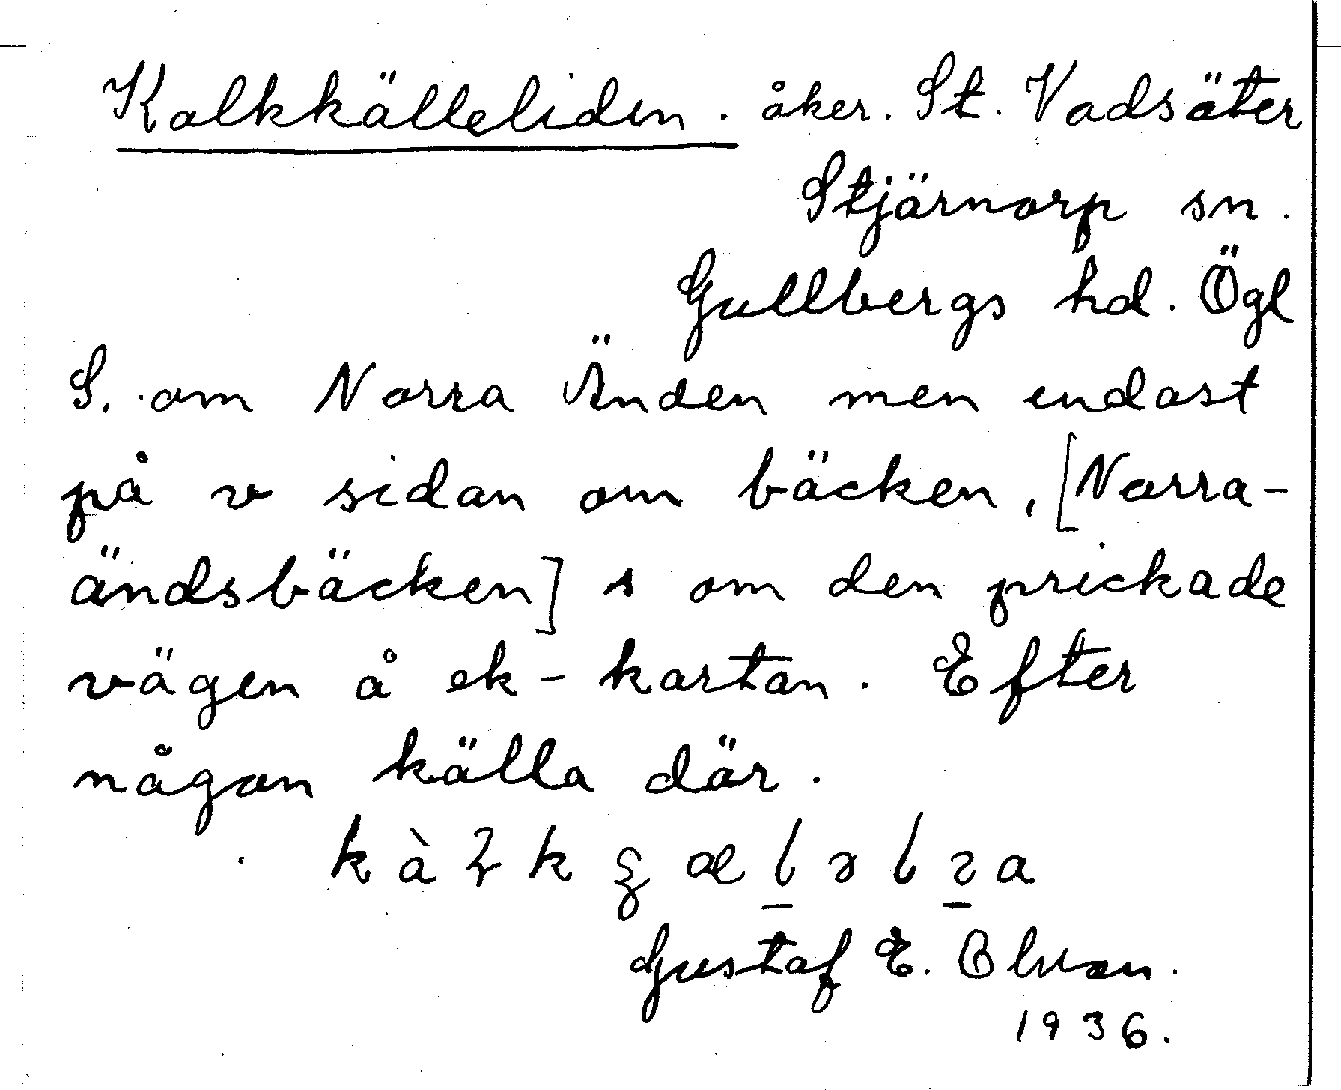 Kalkkälleliden. åker. St. Vadsäter
Stjärnorp sn.
Gullbergs hd. Ögl
S. om Norra Änden men endast
på v sidan om bäcken, [Norra-
ändsbäcken] s om den prickade
vägen å ek-kartan. Efter
någon källa där.
Gustaf E. Olsson.
1936.